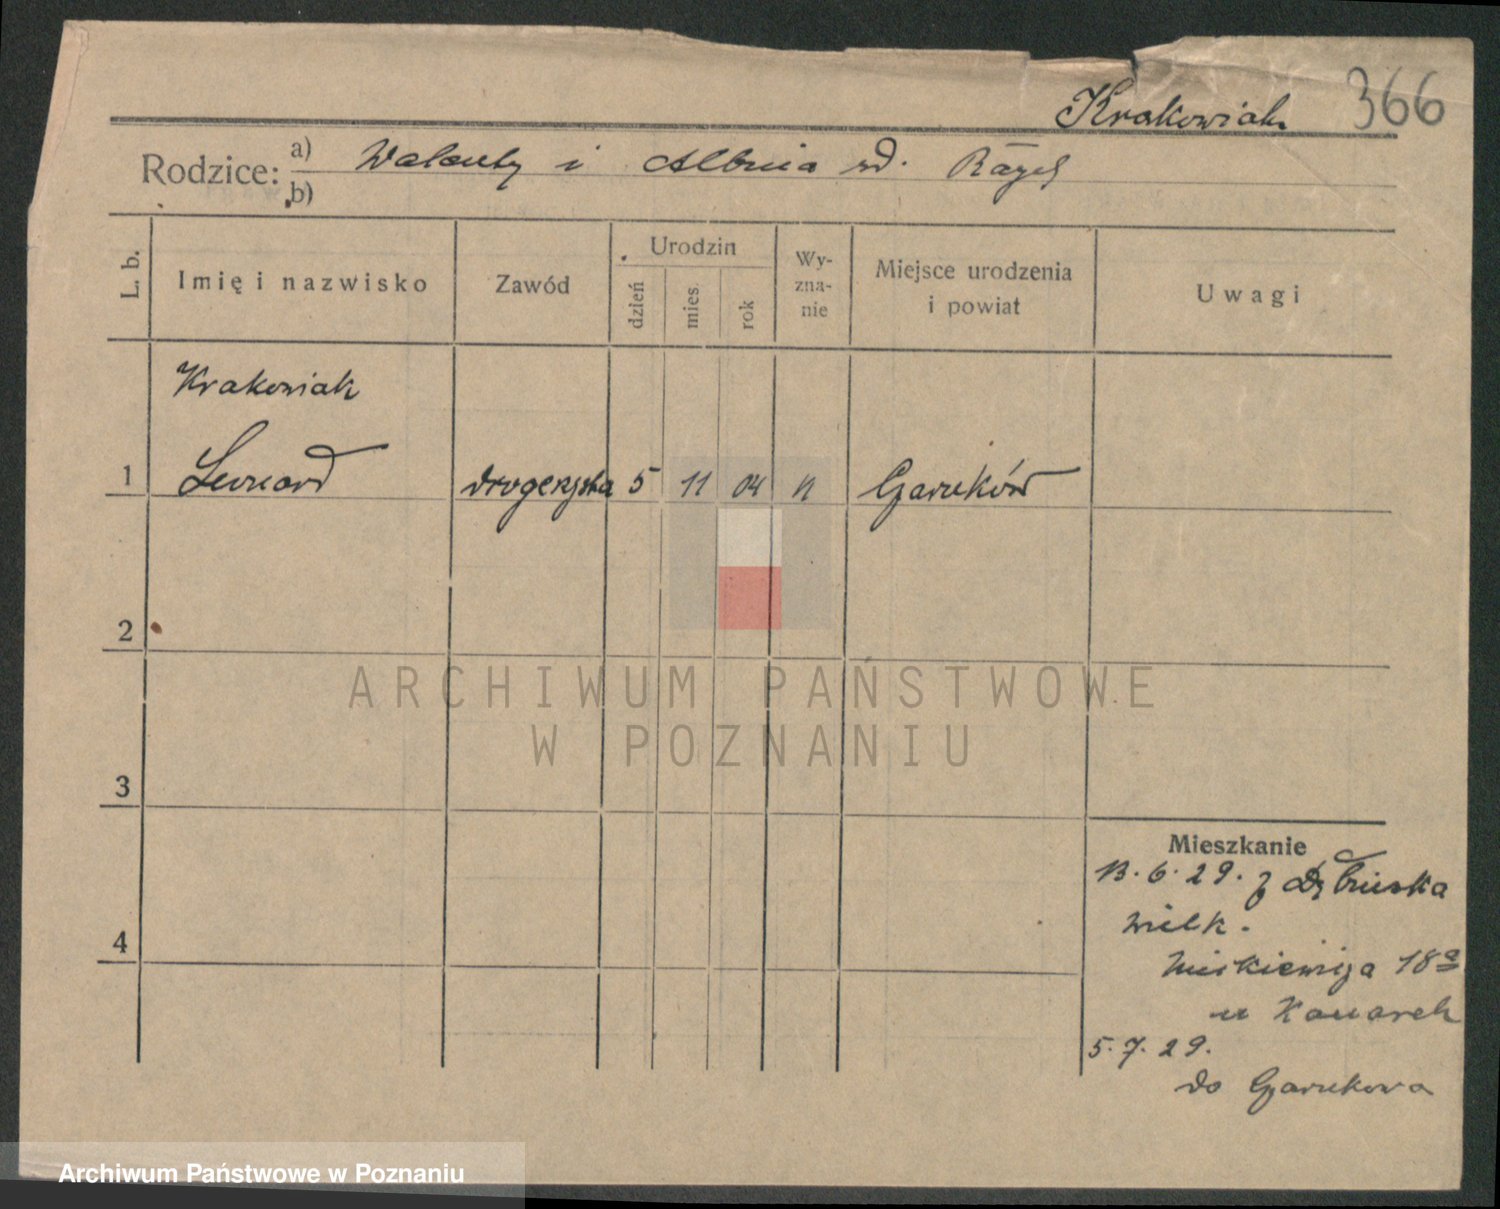 Krakowiak 366
Rodzice: a) Walenty i Albina
b)
L. b.
Imię i nazwisko
Zawód
Urodzin
dzień
mies.
rok
Wy-
zna-
nie
Miejsce urodzenia
i powiat
Uwagi
Krakowiak
1 Leonard drogerzysta 5 11 04 Czarnków
2
3
4
Mieszkanie
13.6.29. z
wielk.
18a
u Kanarek
5.7.29.
do Czarnkowa
ARCHIWUM PAŃSTWOWE
W POZNANIU
Archiwum Państwowe w Poznaniu